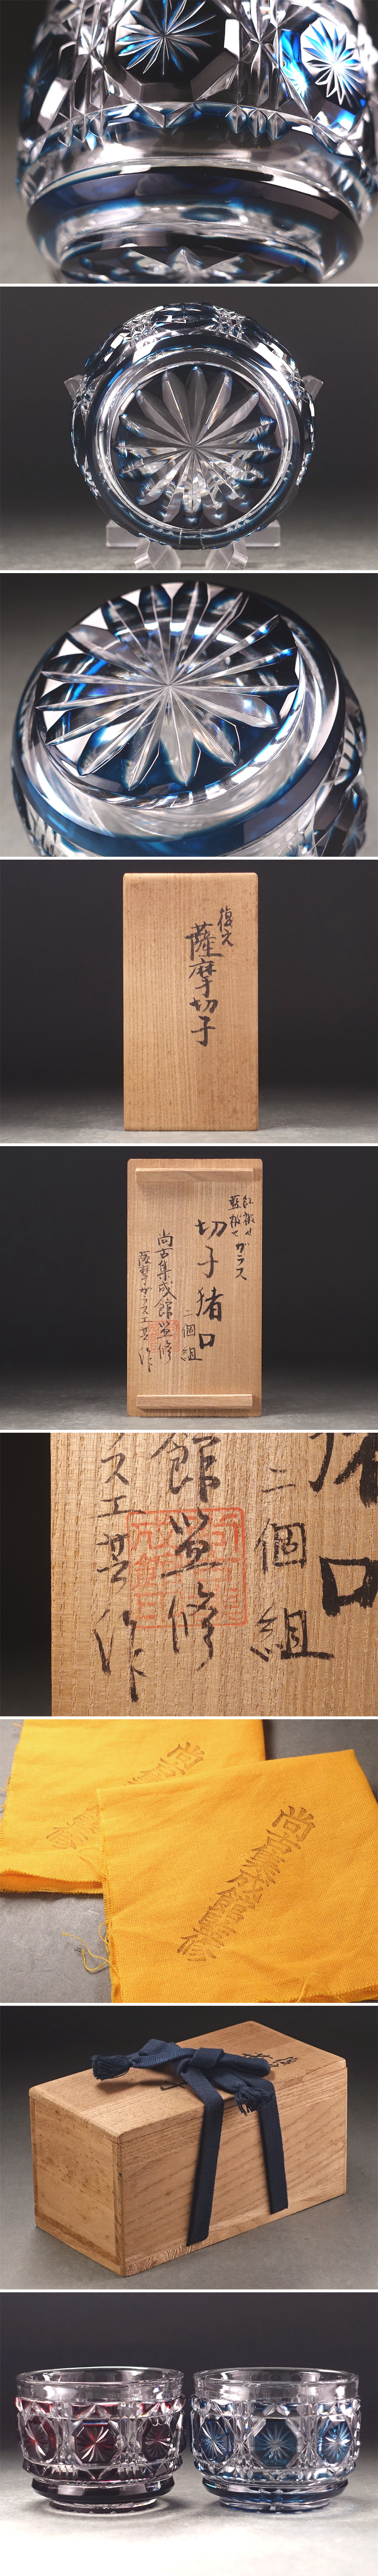 復元
薩摩切子
紅被せ
藍被せ
ガラス
切子猪口
二個組
尚古集成館監修
薩摩ガラス工芸作
猪口
二個組
館監修
ス工芸作
尚古集成館監修